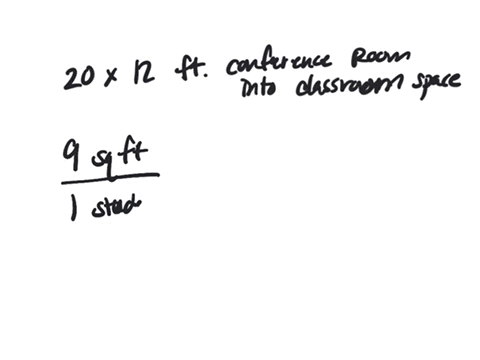 20 x 12 ft. conference Room
into classroom space
9 sq ft
1 stud